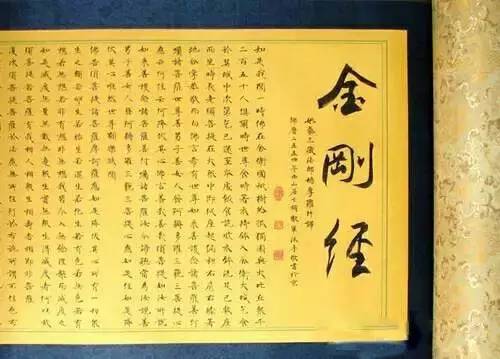 金剛經
姚秦三藏法師鳩摩羅什譯
如是我聞一時佛在舍衛國祇樹給孤獨園與大比丘眾千
二百五十人俱爾時世尊食時著衣持缽入舍衛大城乞食
於其城中次第乞已還至本處飯食訖收衣缽洗足已敷座
而坐時長老須菩提在大眾中即從座起偏袒右肩右膝著
地合掌恭敬而白佛言希有世尊如來善護念諸菩薩善付
囑諸菩薩世尊善男子善女人發阿耨多羅三藐三菩提心
應云何住云何降伏其心佛言善哉善哉須菩提如汝所說
如來善護念諸菩薩善付囑諸菩薩汝今諦聽當為汝說善
男子善女人發阿耨多羅三藐三菩提心應如是住如是降
伏其心唯然世尊願樂欲聞
佛告須菩提諸菩薩摩訶薩應如是降伏其心所有一切眾
生之類若卵生若胎生若濕生若化生若有色若無色若有
想若無想若非有想非無想我皆令入無餘涅槃而滅度之
如是滅度無量無數無邊眾生實無眾生得滅度者何以故
須菩提若菩薩有我相人相眾生相壽者相即非菩薩
復次須菩提菩薩於法應無所住行於布施所謂不住色布